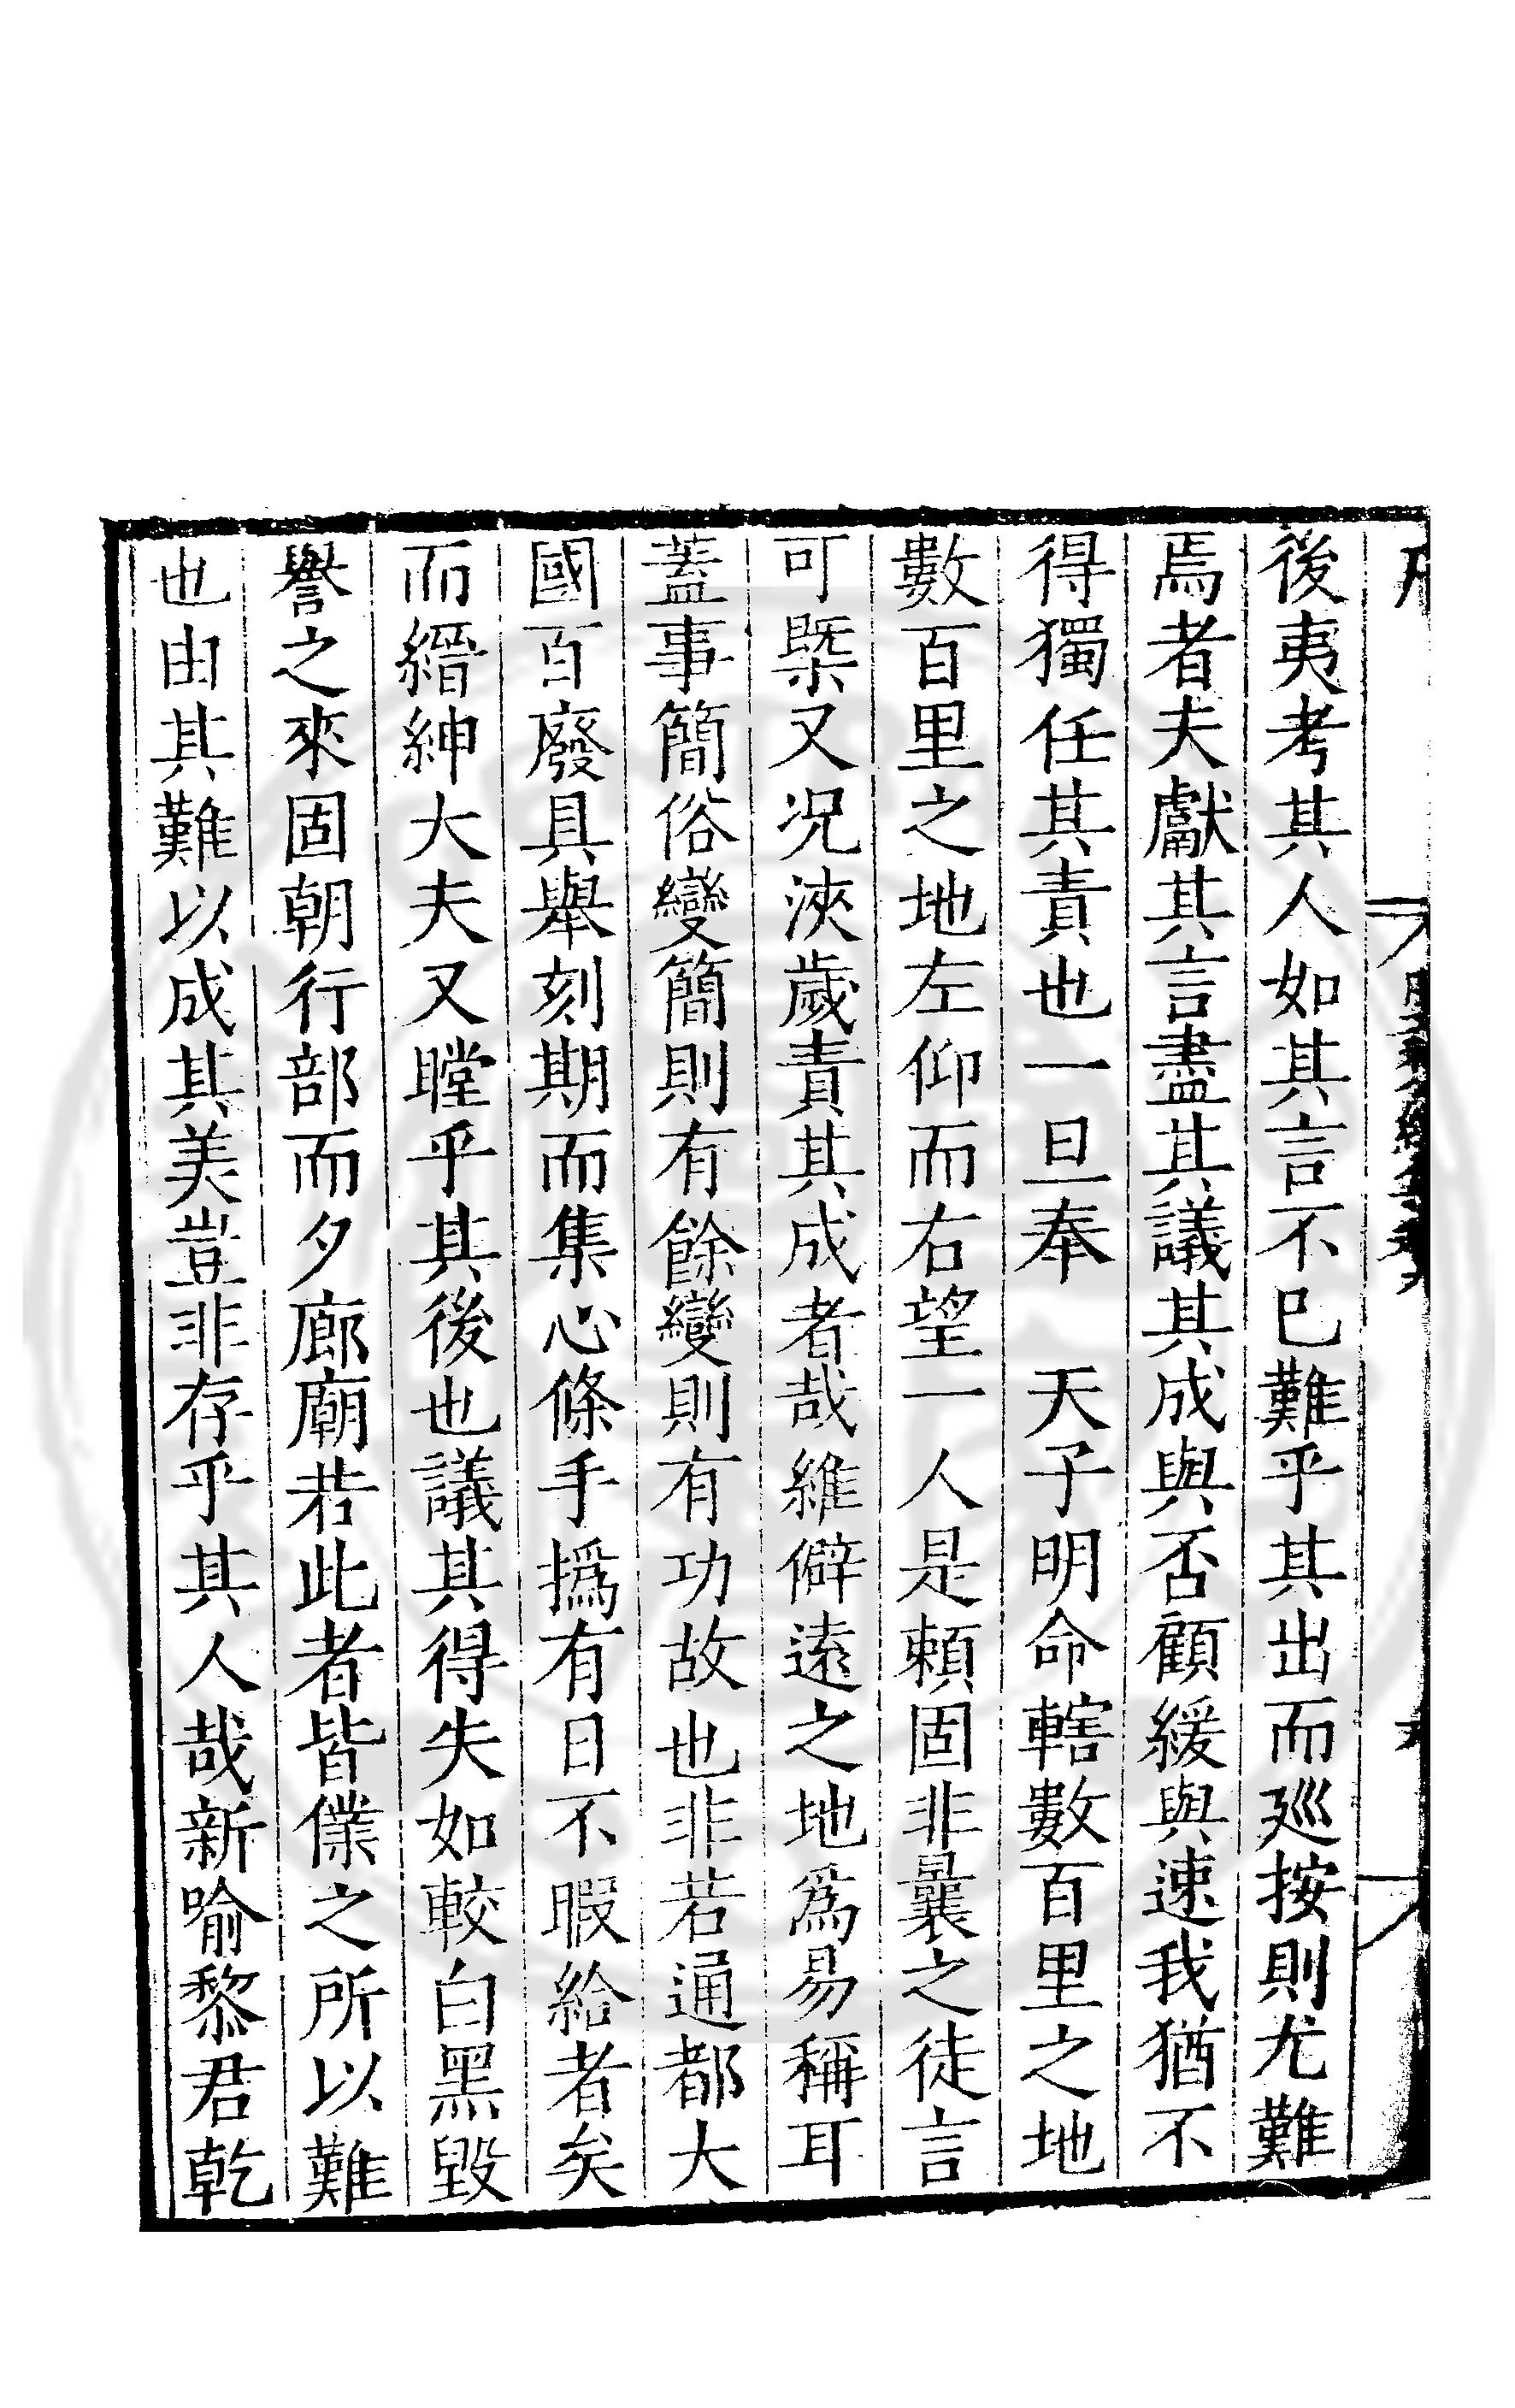 後夷考其人如其言不已難乎其出而廵按則尤難
焉者夫獻其言盡其議其成與否顧緩與速我猶不
得獨任其責也一旦奉　天子明命轄數百里之地
數百里之地左仰而右望一人是頼固非曩之徒言
可槩又况浹歲責其成者哉維僻遠之地爲易稱耳
蓋事簡俗變簡則有餘變則有功故也非若通都大
國百廢具舉刻期而集心條手撝有日不暇給者矣
而縉紳大夫又瞠乎其後也議其得失如較白黑毀
譽之來固朝行部而夕廊廟若此者皆僕之所以難
也由其難以成其美豈非存乎其人哉新喻黎君乾